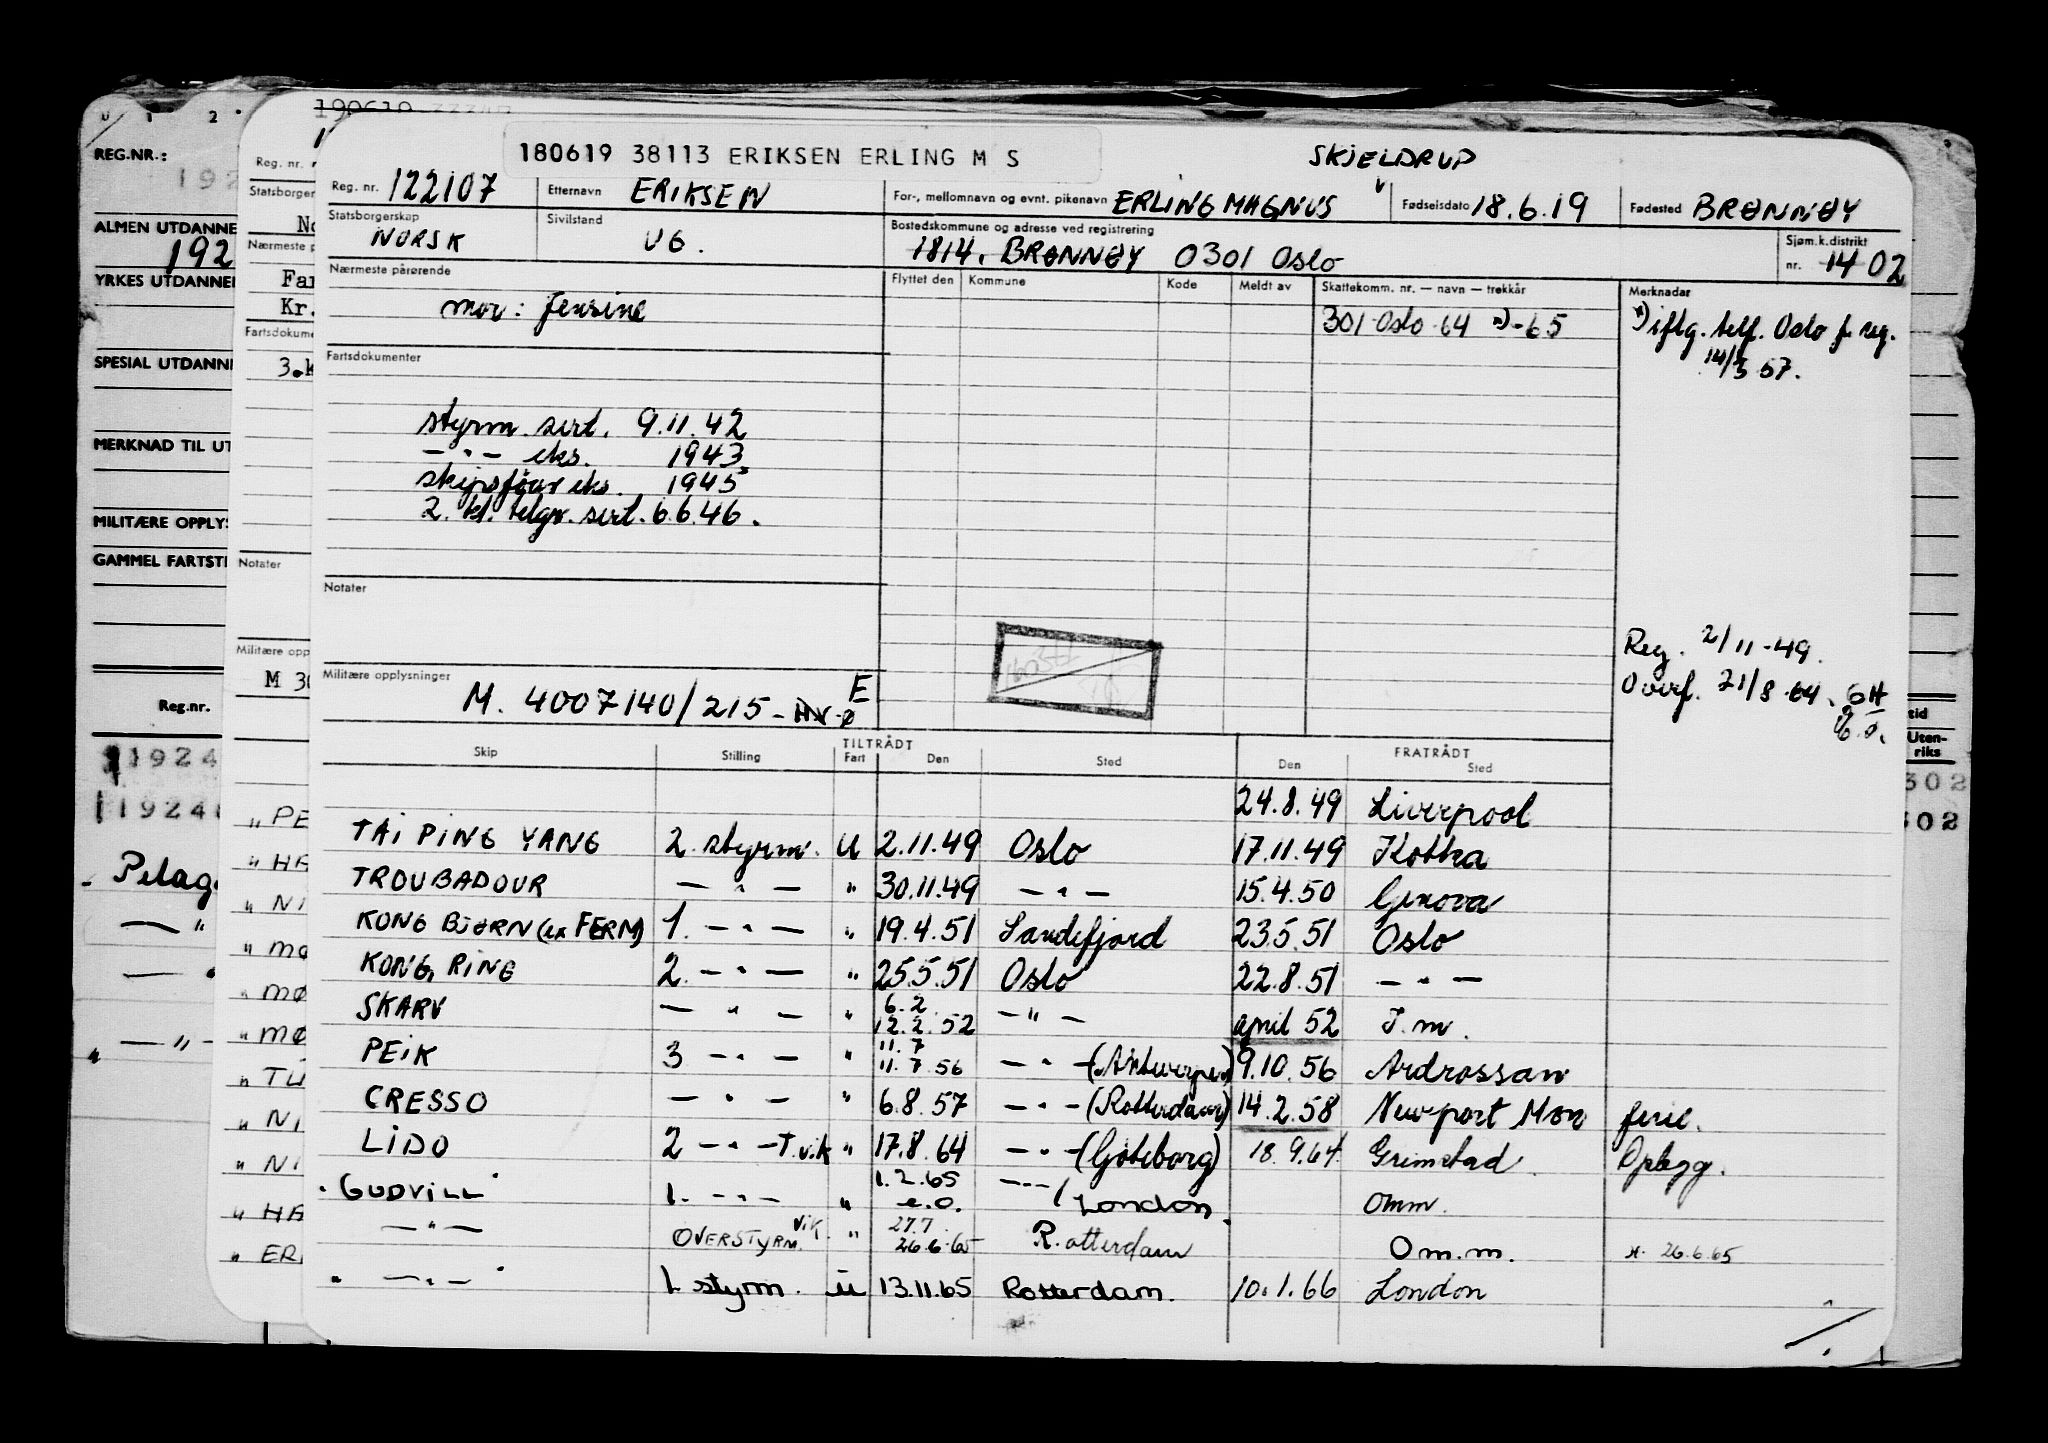 180619 38113 ERIKSEN ERLING M S
SKJELDRUP
Reg. nr. 122107 Etternavn ERIKSEN For-, mellomnavn og evnt. pikenavn ERLING MAGNUS Fødselsdato 18.6.19 Fødested BRØNNØY
Statsborgerskap NORSK Sivilstand UG. Bostedskommune og adresse ved registrering 1814, BRØNNØY 0301 Oslo Sjøm.k.distrikt nr. 14 02
Nærmeste pårørende Flyttet den Kommune Kode Meldt av Skattekomm. nr. — navn — trekkår Merknadar
mor: Jensine 301 Oslo 64 *) -65 *) iflg. telf. Oslo f. reg.
14/3 57.
Fartsdokumenter
styrm. sert. 9.11.42
— " — eks. 1943
skipsfører eks. 1945
2. kl. telgr. sert. 6.6.46.
Notater
Reg. 2/11-49.
Overf. 21/8-64. GH
Militære opplysninger M. 4007140/215 - HV-Ø E
Skip Stilling TILTRÅDT Fart Den Sted FRATRÅDT Den Sted
24.8.49 Liverpool
TAI PING YANG 2. styrm. U 2.11.49 Oslo 17.11.49 Kotka
TROUBADOUR — " — " 30.11.49 — " — 15.4.50 Genova
KONG BJØRN (ex FERM) 1. — " — " 19.4.51 Sandefjord 23.5.51 Oslo
KONG RING 2. — " — " 25.5.51 Oslo 22.8.51 — " —
SKARV — " — " 6.2 12.2.52 — " — april 52 I.m.
PEIK 3 — " — " 11.7 11.7.56 — " — (Antwerpen) 9.10.56 Ardrossan
CRESSO — " — " 6.8.57 — " — (Rotterdam) 14.2.58 Newport Mon ferie.
LIDO 2 — " — T.vik " 17.8.64 — " — (Gøteborg) 18.9.64 Grimstad Oplegg.
GUDVILL 1. — " — " 1.2.65 e.o. — " — / London. omm.
— " — OVERSTYRM. VIK. " 27.7 26.6.65 Rotterdam Om.m. *. 26.6.65
" — " — 1. styrm. U 13.11.65 Rotterdam. 10.1.66 London
REG.NR.:
ALMEN UTDANNE
192
YRKES UTDANNEL
SPESIAL UTDANNE
MERKNAD TIL UT
MILITÆRE OPPLYS
GAMMEL FARTSTI
Reg.nr.
1924
1924
Pelag
Reg. nr.
Statsborger
Nærmeste p
Far
Kr.
Fartsdokume
3.k
Notater
Militære opp
M 30
" PE
" HA
" NI
" MØ
" MØ
" TU
" NI
" NI
" HA
" ER
Uten-
riks
302
302